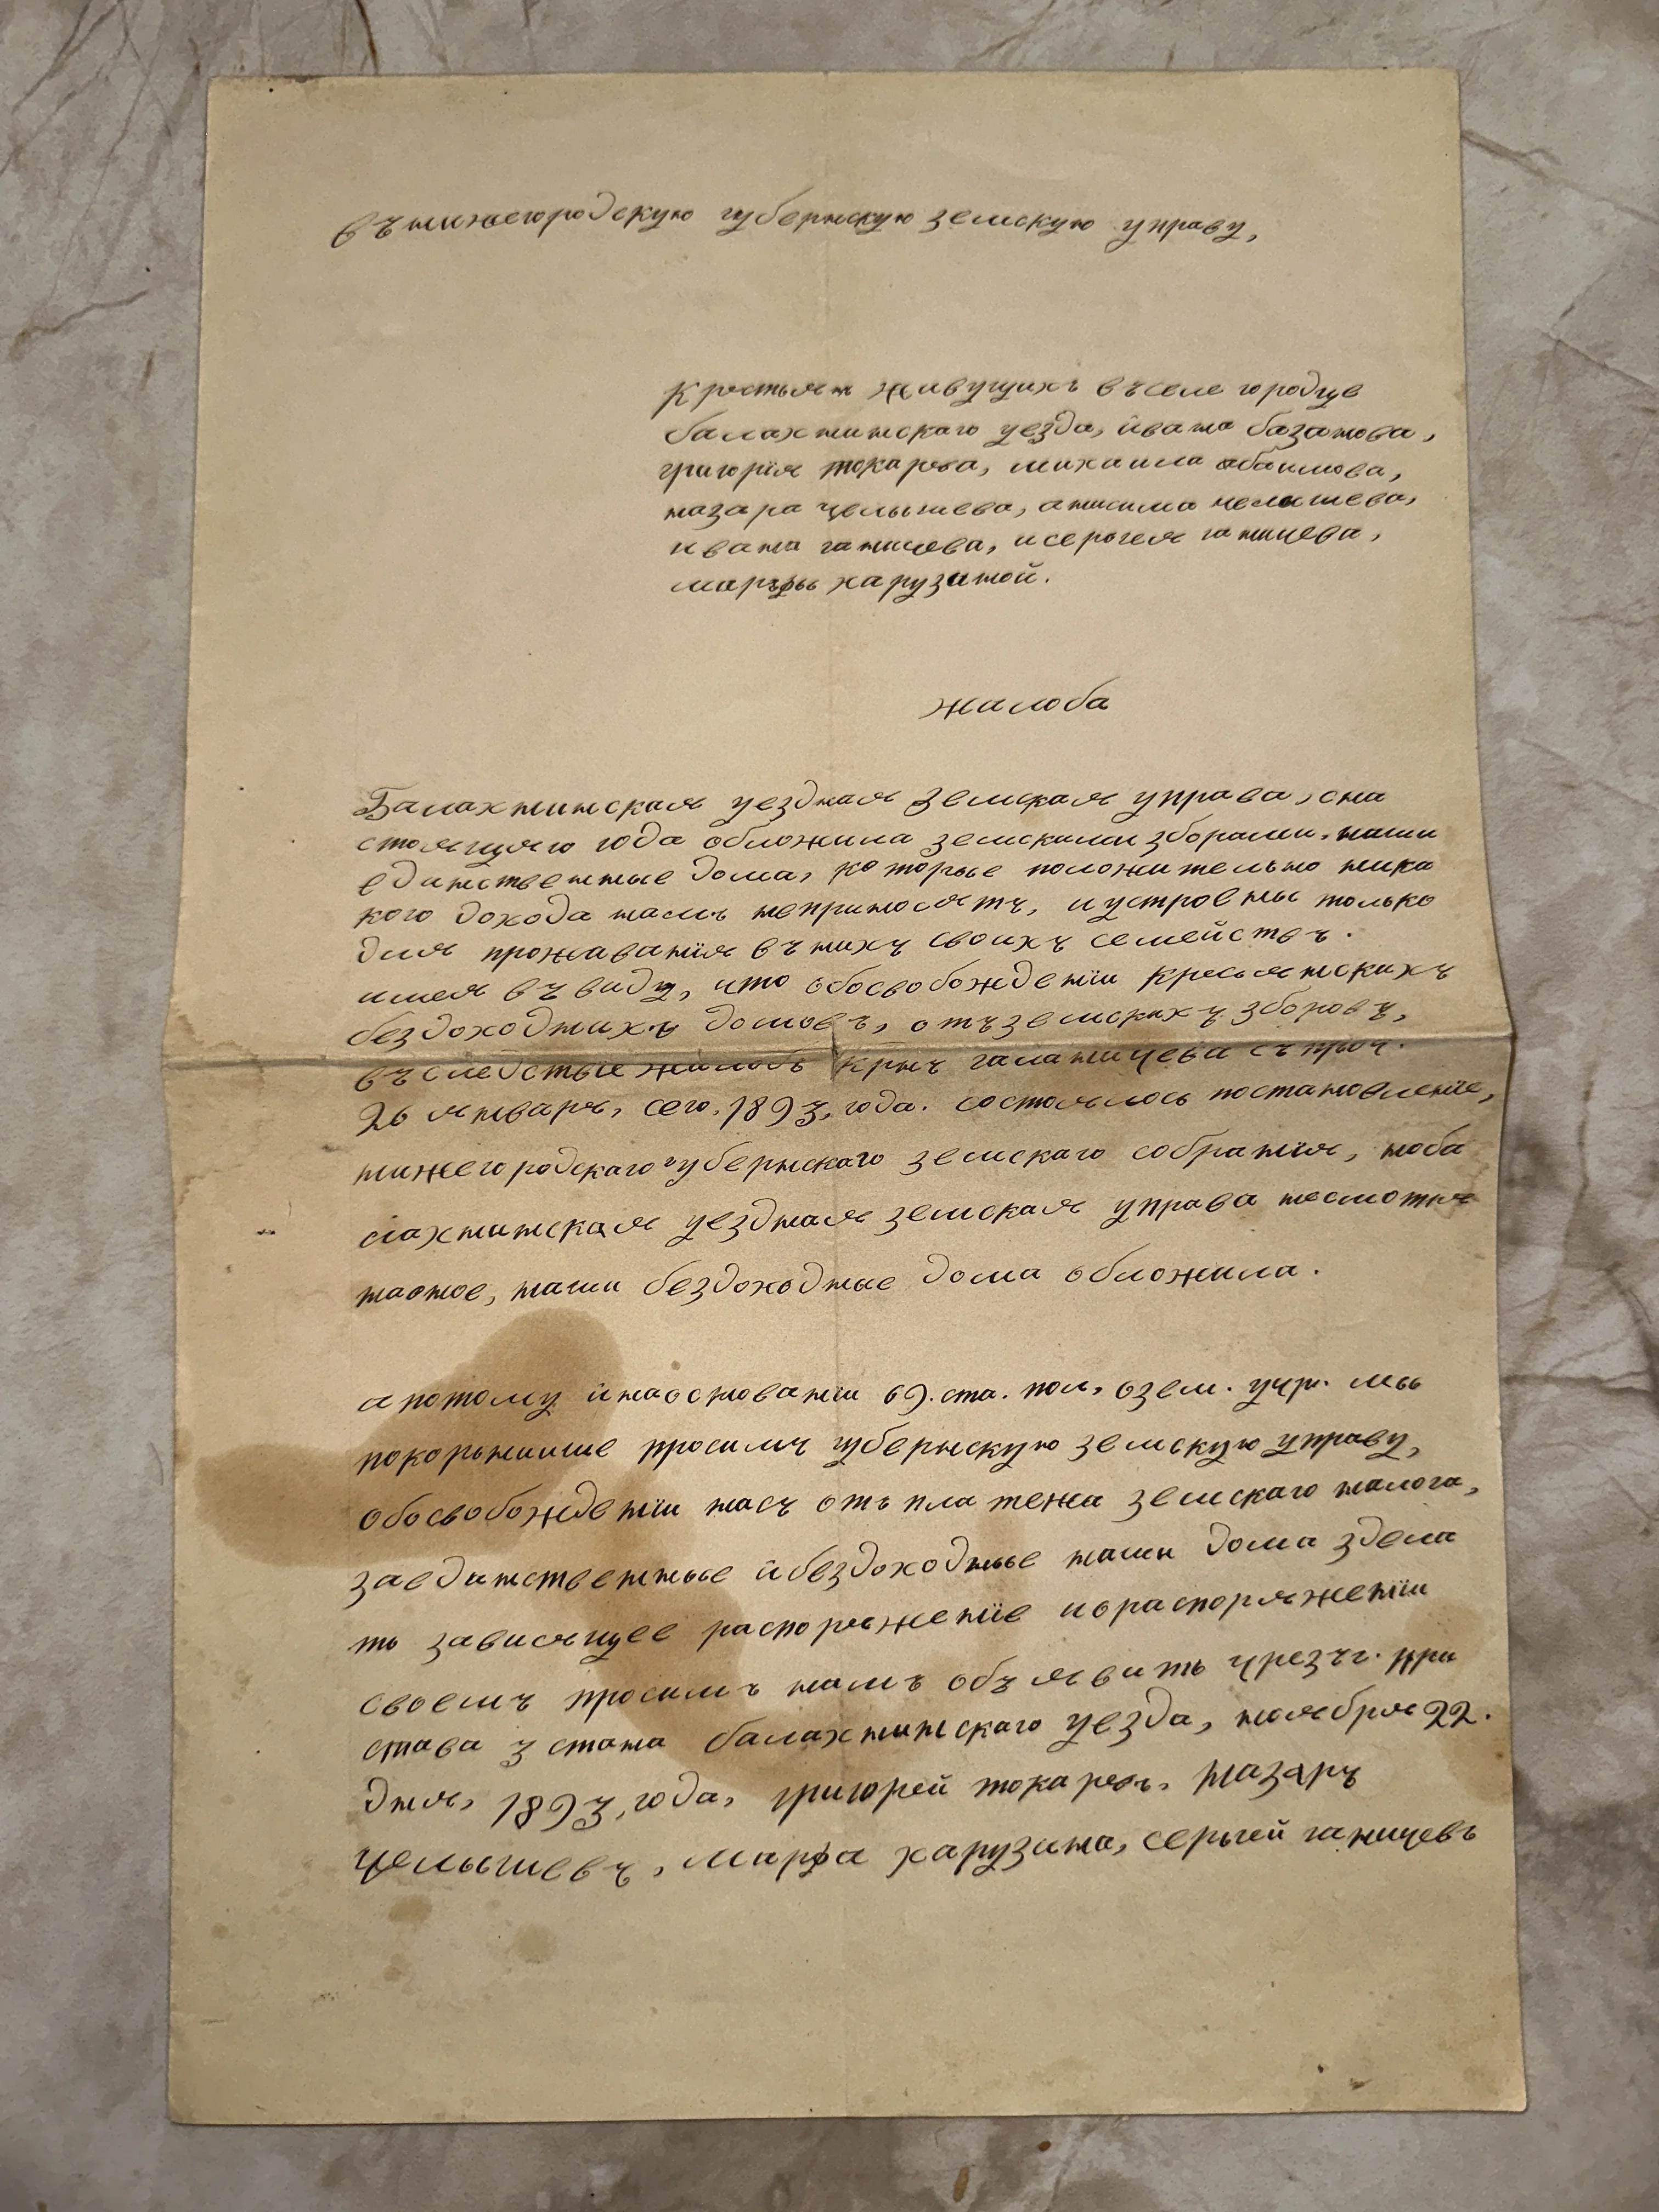 въ нижегородскую губернскую земскую управу,
крестьян живущихъ въ селе городце
балахнинскаго уезда, ивана базанова,
григорія токарева, михаила абаимова,
назара целышева, анисима челышева,
ивана ганичева, и сергея ганичева,
марфы харузиной.
жалоба
Балахнинская уездная земская управа, сна
стоящяго года обложила земскими зборами, наши
единственные дома, которые положительно ника
кого дохода намъ неприносятъ, и устроены только
для проживанія въ нихъ своихъ семействъ.
имея въ виду, что обосвобожденіи кресьянскихъ
бездоходнихъ домовъ, отъ земскихъ зборовъ,
въследствіе жалобъ крнъ галаничева съ проч.
26 январь, сего, 1893, года. состоялось постановленіе,
нижегородскаго губернскаго земскаго собранія, ноба
лахнинская уездная земская управа несмотря
наоное, наши бездоходные дома обложила.
а потому и наоснованіи 69. ста. пол, озем. учр. мы
покорнишие просимъ губернскую земскую управу,
обосвобожденіи насъ отъ платежа земскаго налога,
заединственные и бездоходные наши дома здела
ть зависящее распоряженіе и о распоряженіи
своемъ просимъ намъ объявить чрезъ г. при
става 3 стана балахнинскаго уезда, ноября 22.
дня, 1893, года, григорей токаревъ, назаръ
целышевъ, марфа харузина, сергей ганичевъ